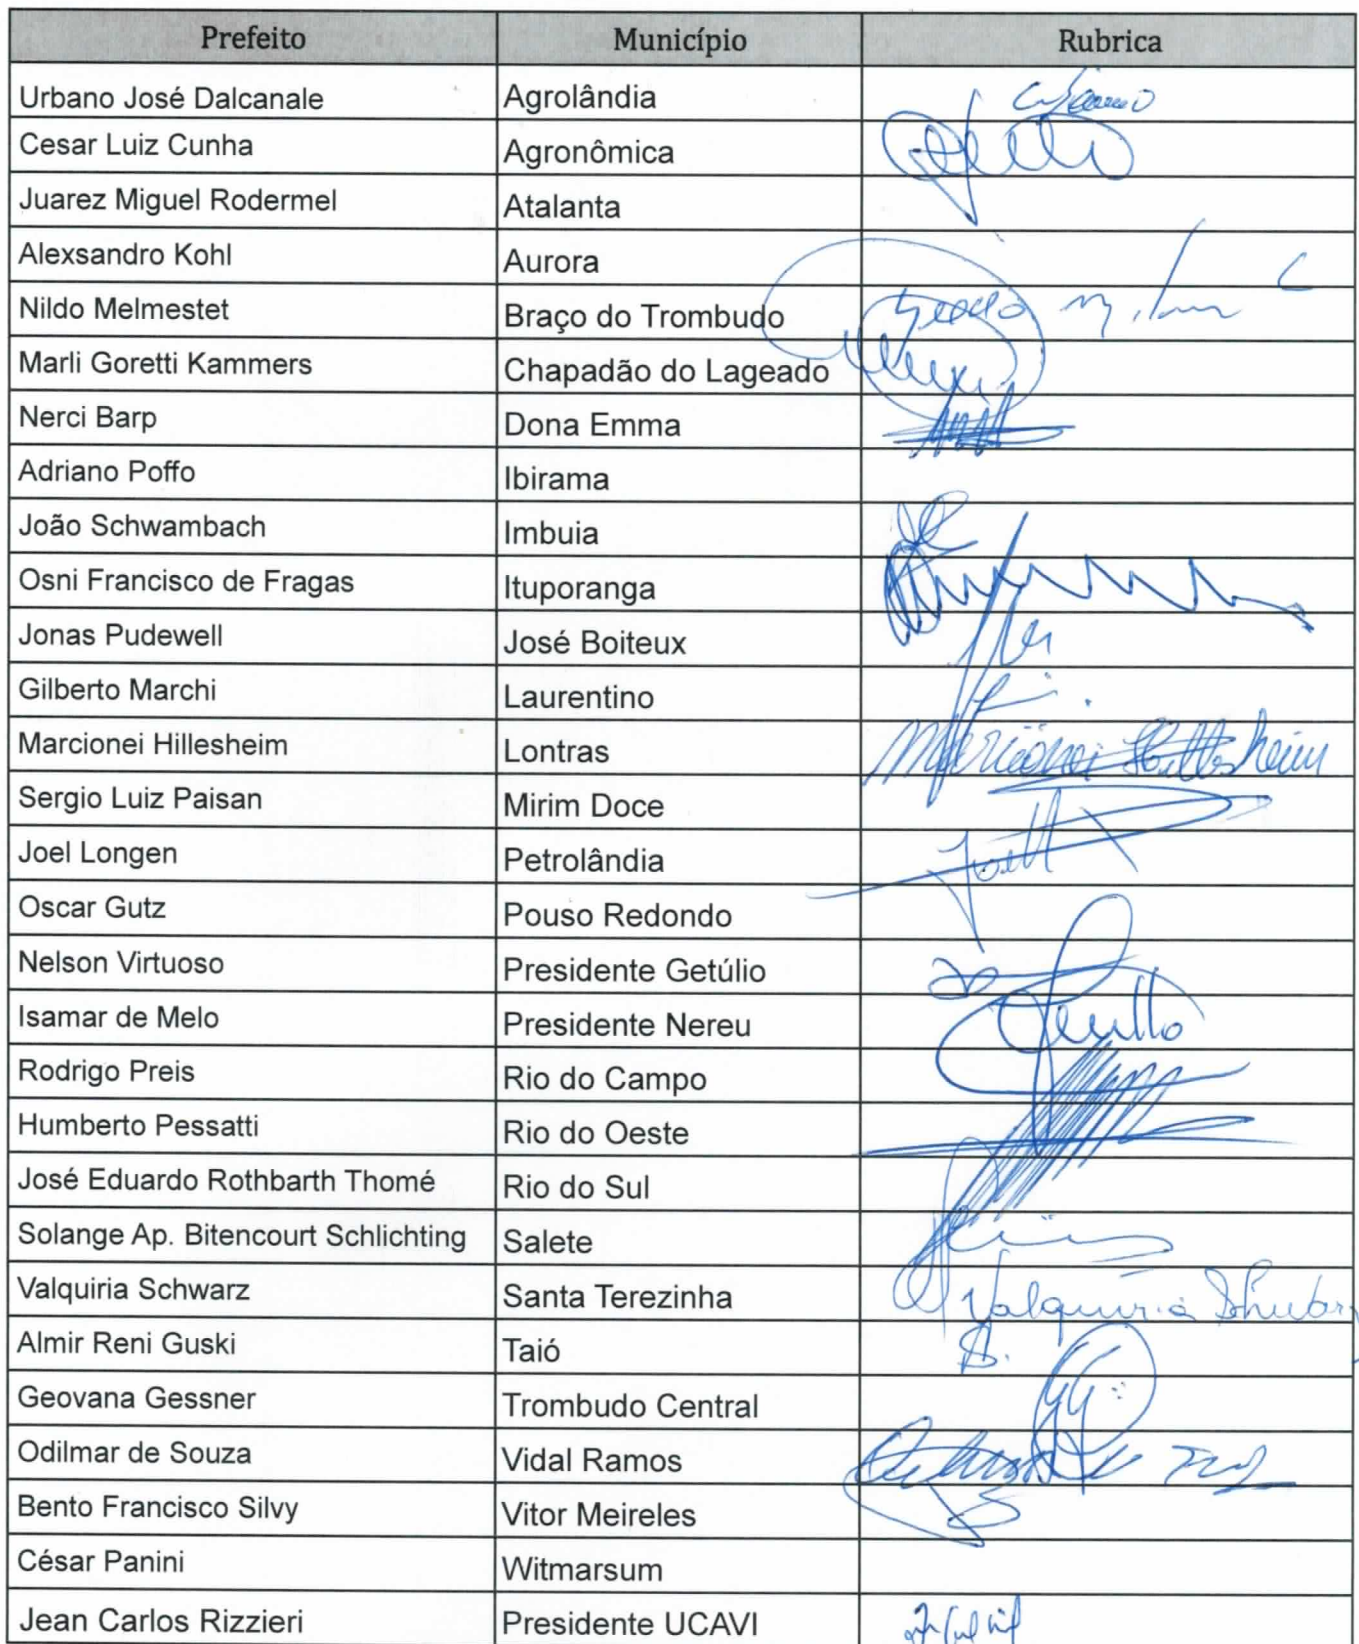 Prefeito Município Rubrica
Urbano José Dalcanale Agrolândia
Cesar Luiz Cunha Agronômica
Juarez Miguel Rodermel Atalanta
Alexsandro Kohl Aurora
Nildo Melmestet Braço do Trombudo
Marli Goretti Kammers Chapadão do Lageado
Nerci Barp Dona Emma
Adriano Poffo Ibirama
João Schwambach Imbuia
Osni Francisco de Fragas Ituporanga
Jonas Pudewell José Boiteux
Gilberto Marchi Laurentino
Marcionei Hillesheim Lontras Marcionei Hillesheim
Sergio Luiz Paisan Mirim Doce
Joel Longen Petrolândia
Oscar Gutz Pouso Redondo
Nelson Virtuoso Presidente Getúlio
Isamar de Melo Presidente Nereu
Rodrigo Preis Rio do Campo
Humberto Pessatti Rio do Oeste
José Eduardo Rothbarth Thomé Rio do Sul
Solange Ap. Bitencourt Schlichting Salete
Valquiria Schwarz Santa Terezinha Valquiria
Almir Reni Guski Taió
Geovana Gessner Trombudo Central
Odilmar de Souza Vidal Ramos
Bento Francisco Silvy Vitor Meireles
César Panini Witmarsum
Jean Carlos Rizzieri Presidente UCAVI